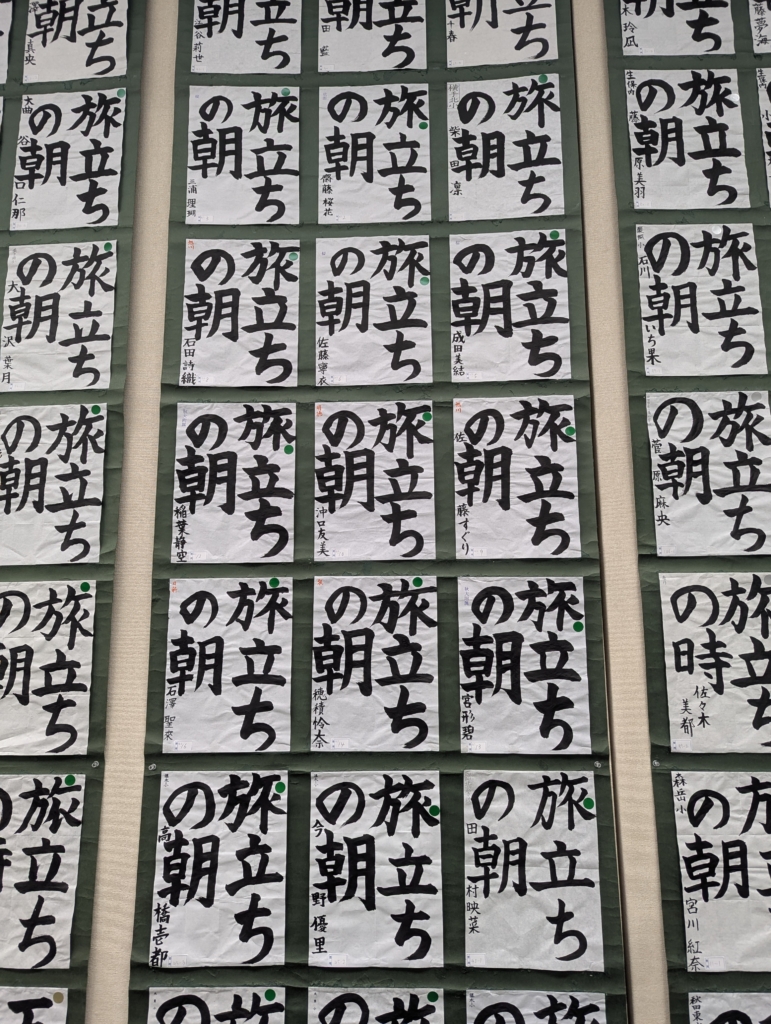 旅立ち
の朝
真央
旅立ち
の朝
旅立ち
の朝
田 藍
旅立ち
の朝
千春
の朝
木 玲凪
藤 夢海
大曲
旅立ち
の朝
谷口仁那
旅立ち
の朝
三浦 理珈
旅立ち
の朝
齋藤 桜花
旅立ち
の朝
柴田 凛
生保内
旅立ち
の朝
藤原美羽
旅立ち
の朝
大沢 葉月
旅立ち
の朝
石田詩織
旅立ち
の朝
佐藤寧衣
旅立ち
の朝
成田美結
旅立ち
の朝
石川いち果
旅立ち
の朝
旅立ち
の朝
稲葉静空
旅立ち
の朝
沖口友美
旅立ち
の朝
佐藤すぐり
旅立ち
の朝
菅原麻央
旅立ち
の朝
旅立ち
の朝
石澤 聖來
旅立ち
の朝
穂積怜奈
旅立ち
の朝
宮形碧
旅立ち
の時
佐々木
美都
旅立ち
の時
旅立ち
の朝
高橋壱都
旅立ち
の朝
今野優里
旅立ち
の朝
田村映菜
森岳小
旅立ち
の朝
宮川 紅奈
旅
の
旅
の
旅
の
秋田東